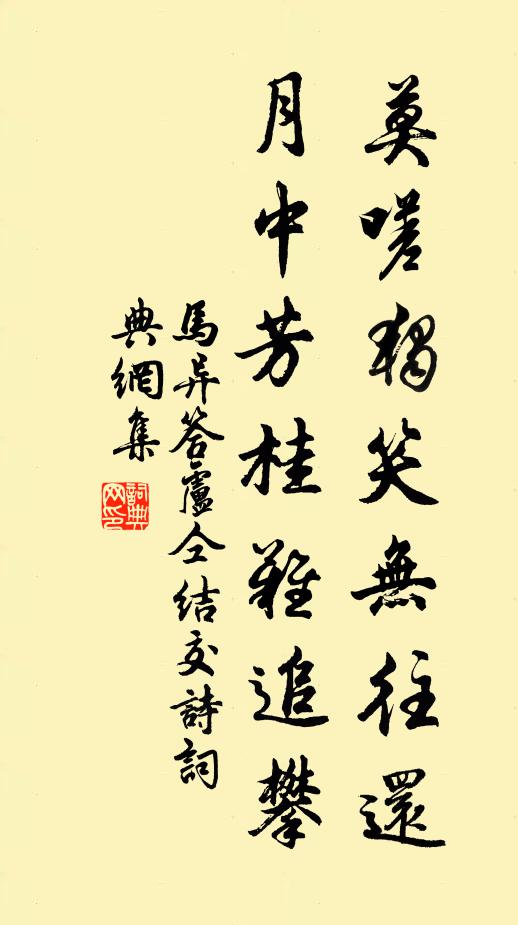 莫嗟獨笑無往還
月中芳桂難追攀
馬异答盧仝結交詩詞
典網集
詞典
网印